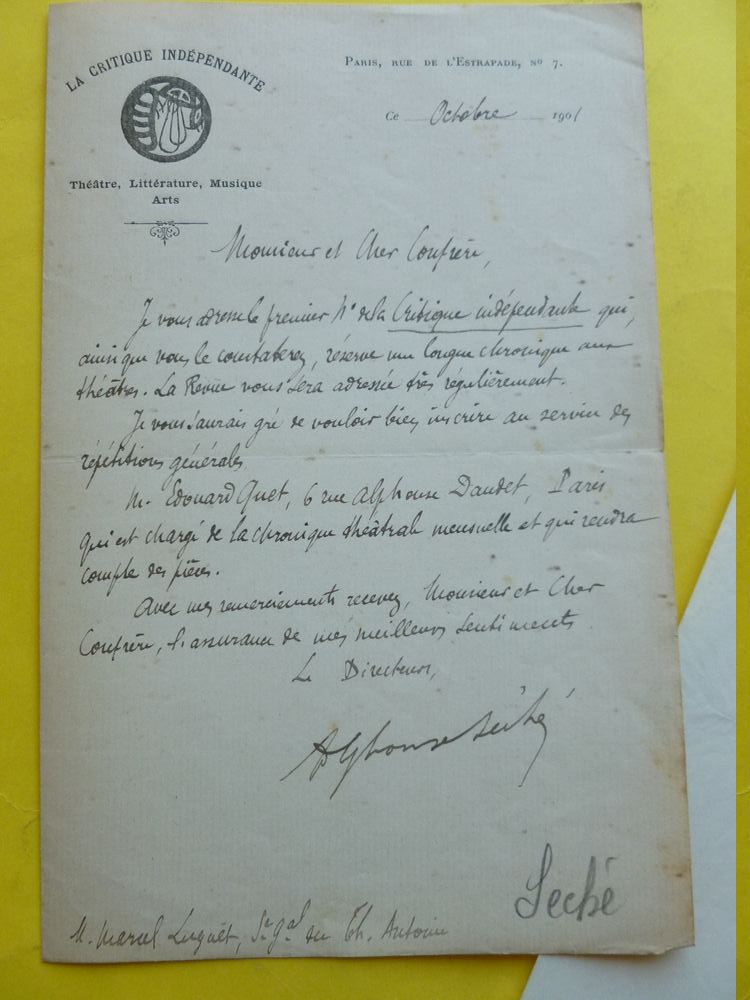 LA CRITIQUE INDÉPENDANTE
Théâtre, Littérature, Musique
Arts
PARIS, RUE DE L'ESTRAPADE, No 7.
Ce Octobre 1901
Monsieur et Cher Confrère,
Je vous adresse le premier No de la Critique indépendante qui,
ainsi que vous le constaterez, réserve une longue chronique aux
théâtres. La Revue vous sera adressée très régulièrement.
Je vous saurais gré de vouloir bien inscrire au service des
répétitions générales
M. Edouard Quet, 6 rue Alphonse Daudet, Paris
qui est chargé de la chronique théâtrale mensuelle et qui rendra
compte des pièces.
Avec mes remerciements recevez, Monsieur et Cher
Confrère, l'assurance de mes meilleurs sentiments
Le Directeur,
Alphonse Séché
Seché
M. Marcel Luguet, Sre Gal du Th. Antoine